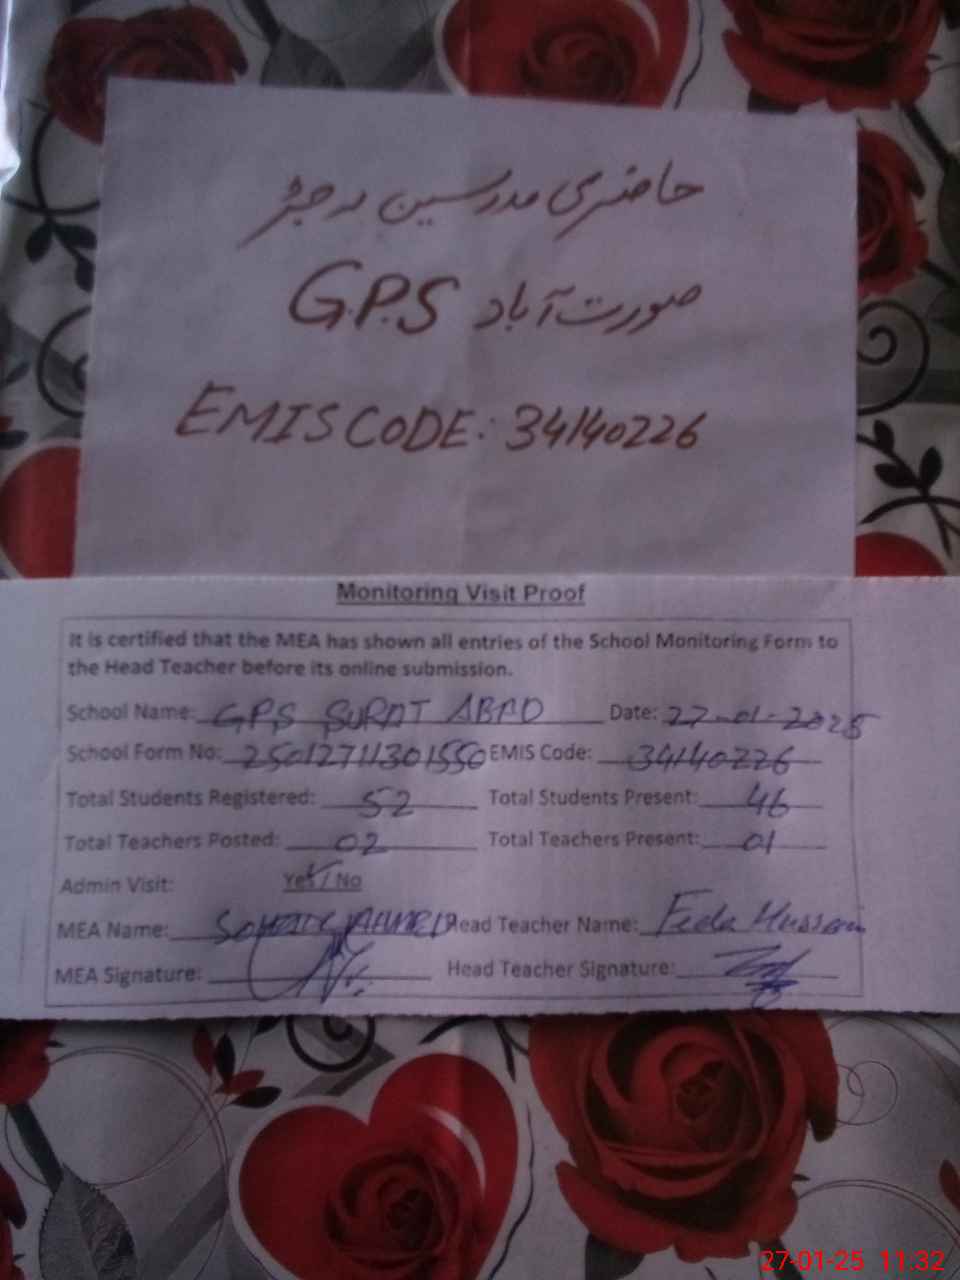 حاضری مدرسین رجسٹر
G.P.S صورت آباد
EMIS CODE: 34140226
Monitoring Visit Proof
It is certified that the MEA has shown all entries of the School Monitoring Form to
the Head Teacher before its online submission.
School Name: GPS SURAT ABAD Date: 27-01-2025
School Form No: 25012711301550 EMIS Code: 34140226
Total Students Registered: 52 Total Students Present: 46
Total Teachers Posted: 02 Total Teachers Present: 01
Admin Visit: Yes / No
MEA Name: Head Teacher Name: Feda Hussain
MEA Signature: Head Teacher Signature:
27-01-25 11:32